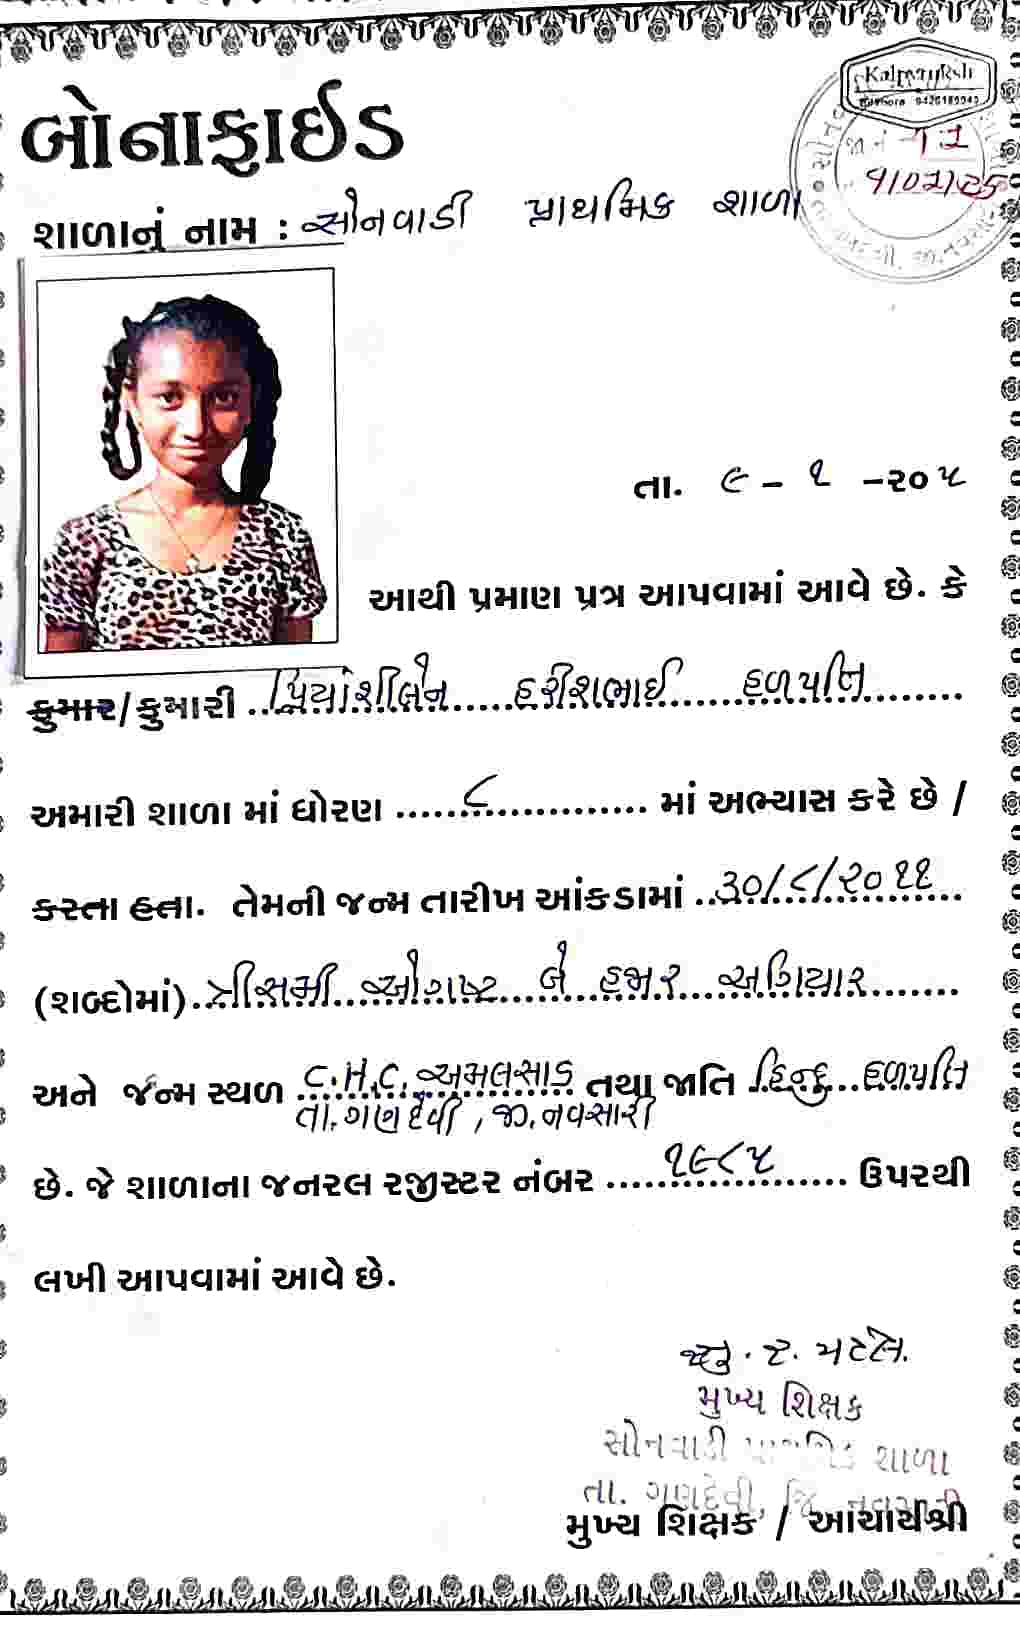 Kalpvruksh
બોનાફાઈડ
શાળાનું નામ : સોનવાડી પ્રાથમિક શાળા
તા. ૯ - ૧ -૨૦ ૫
આથી પ્રમાણ પત્ર આપવામાં આવે છે. કે
કુમાર/કુમારી પ્રિયાંશીબેન હરીશભાઈ હળપતિ
અમારી શાળા માં ધોરણ ૮ માં અભ્યાસ કરે છે /
કરતા હતા. તેમની જન્મ તારીખ આંકડામાં ૩૦/૮/૨૦૧૧
(શબ્દોમાં) ત્રીસમી ઓગષ્ટ બે હજાર અગિયાર
અને જન્મ સ્થળ C.H.C. અમલસાડ તથા જાતિ હિન્દુ હળપતિ
તા. ગણદેવી, જી. નવસારી
છે. જે શાળાના જનરલ રજીસ્ટર નંબર ૧૯૮૫ ઉપરથી
લખી આપવામાં આવે છે.
મુખ્ય શિક્ષક
સોનવાડી પ્રાથમિક શાળા
તા. ગણદેવી, જિ. નવસારી
મુખ્ય શિક્ષક / આચાર્યશ્રી